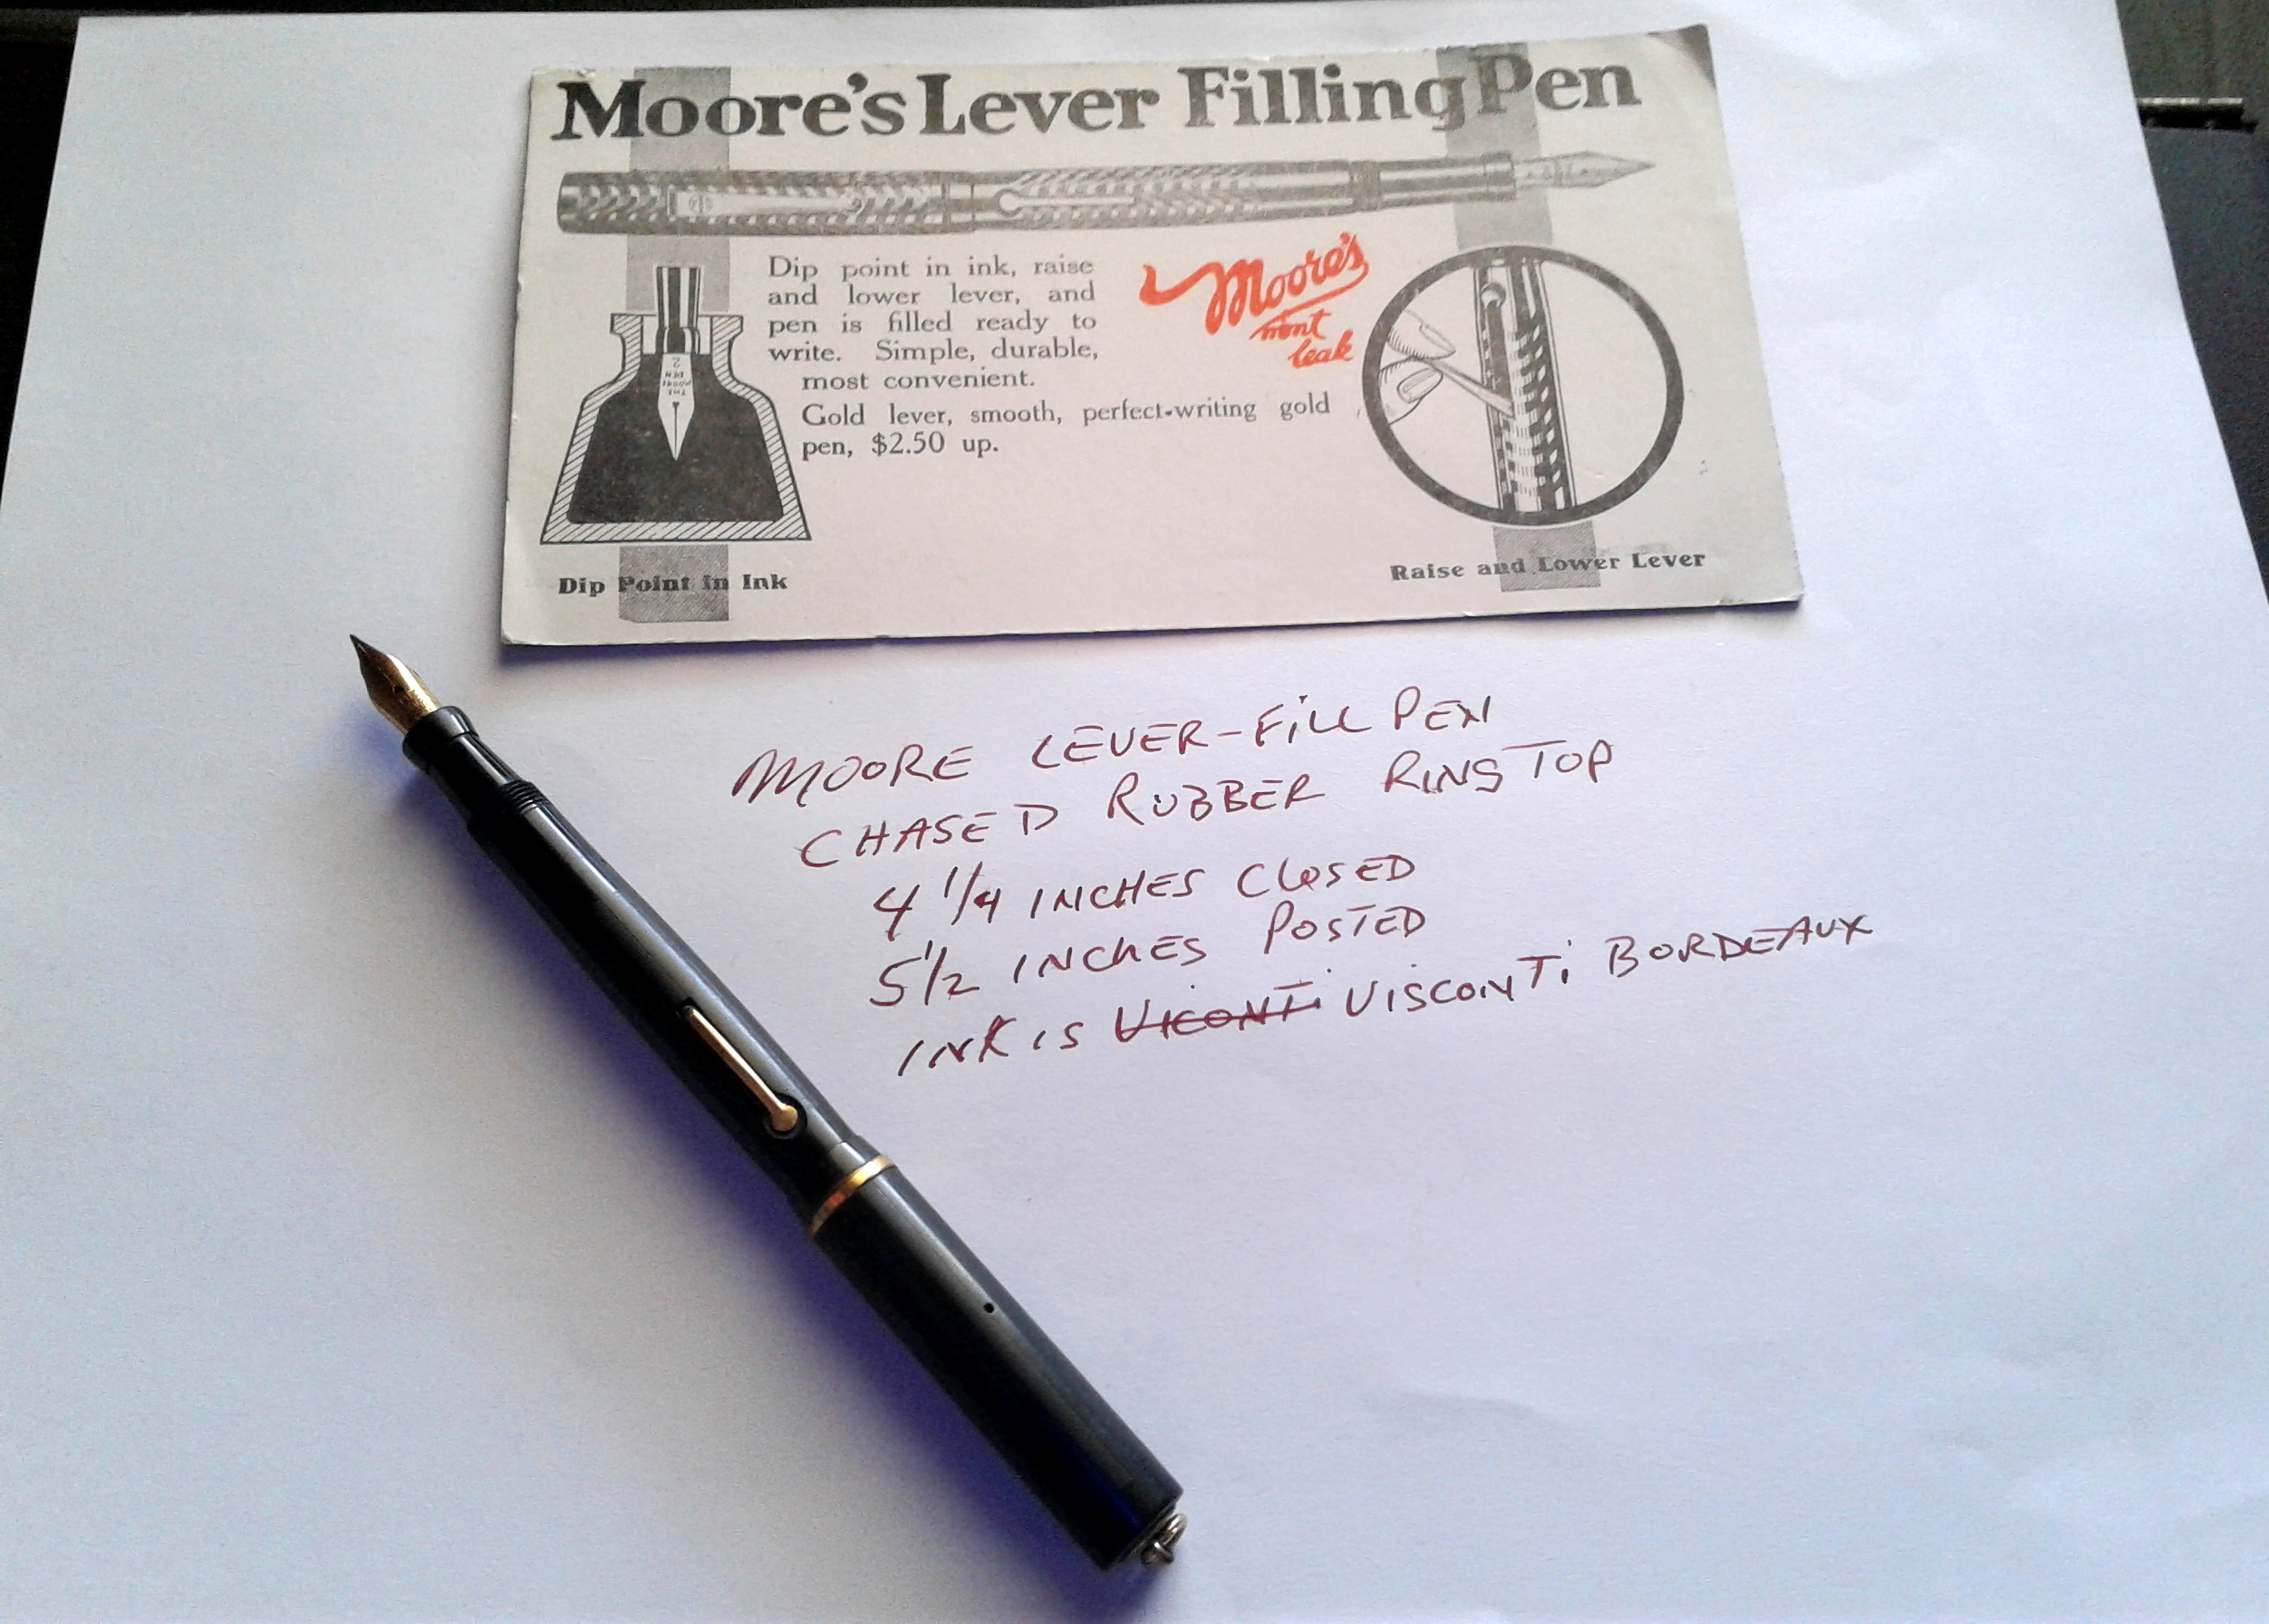 Moore's Lever Filling Pen
Dip point in ink, raise
and lower lever, and
pen is filled ready to
write. Simple, durable,
most convenient.
Gold lever, smooth, perfect-writing gold
pen, $2.50 up.
Moore's
wont
leak
THE
MOORE
PEN
2
Dip Point in Ink
Raise and Lower Lever
MOORE LEVER-FILL PEN
CHASED RUBBER RING TOP
4 1/4 INCHES CLOSED
5 1/2 INCHES POSTED
INK IS VICONTI VISCONTI BORDEAUX